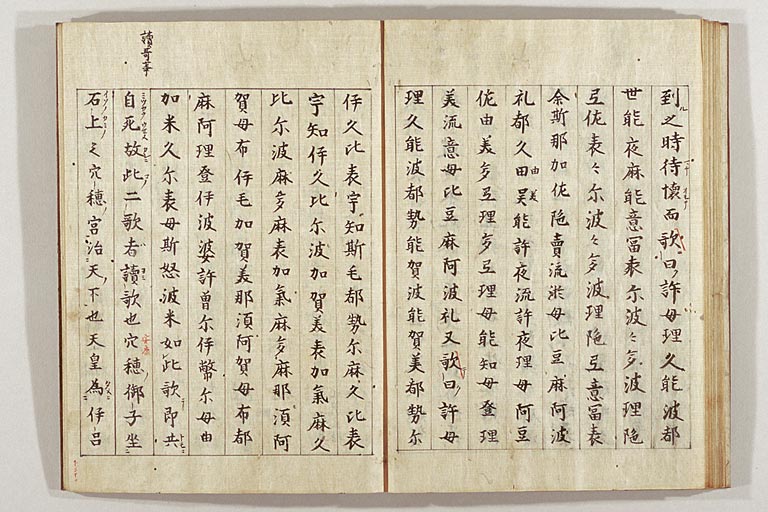 到之時待懷而歌曰許母理久能波都
世能夜麻能意富袁尓波々多波理陁
弖佐袁々尓波々多波理陁弖意富袁
余斯那加佐陁賣流淤母比豆麻阿波
礼都久由美能許夜流許夜理母阿豆
佐由美多弖理多弖理母能知母登理
美流意母比豆麻阿波礼又歌曰許母
理久能波都勢能賀波能賀美都勢尓
伊久比袁宇知斯毛都勢尓麻久比袁
宇知伊久比尓波加賀美袁加氣麻久
比尓波麻多麻袁加氣麻多麻那須阿
賀母布伊毛加賀美那須阿賀母布都
麻阿理登伊波婆許曽尓伊幣尓母由
加米久尓袁母斯怒波米如此歌即共
自死故此二歌者讀歌也穴穂御子坐
石上之穴穂宮治天下也天皇為伊呂
讀哥事